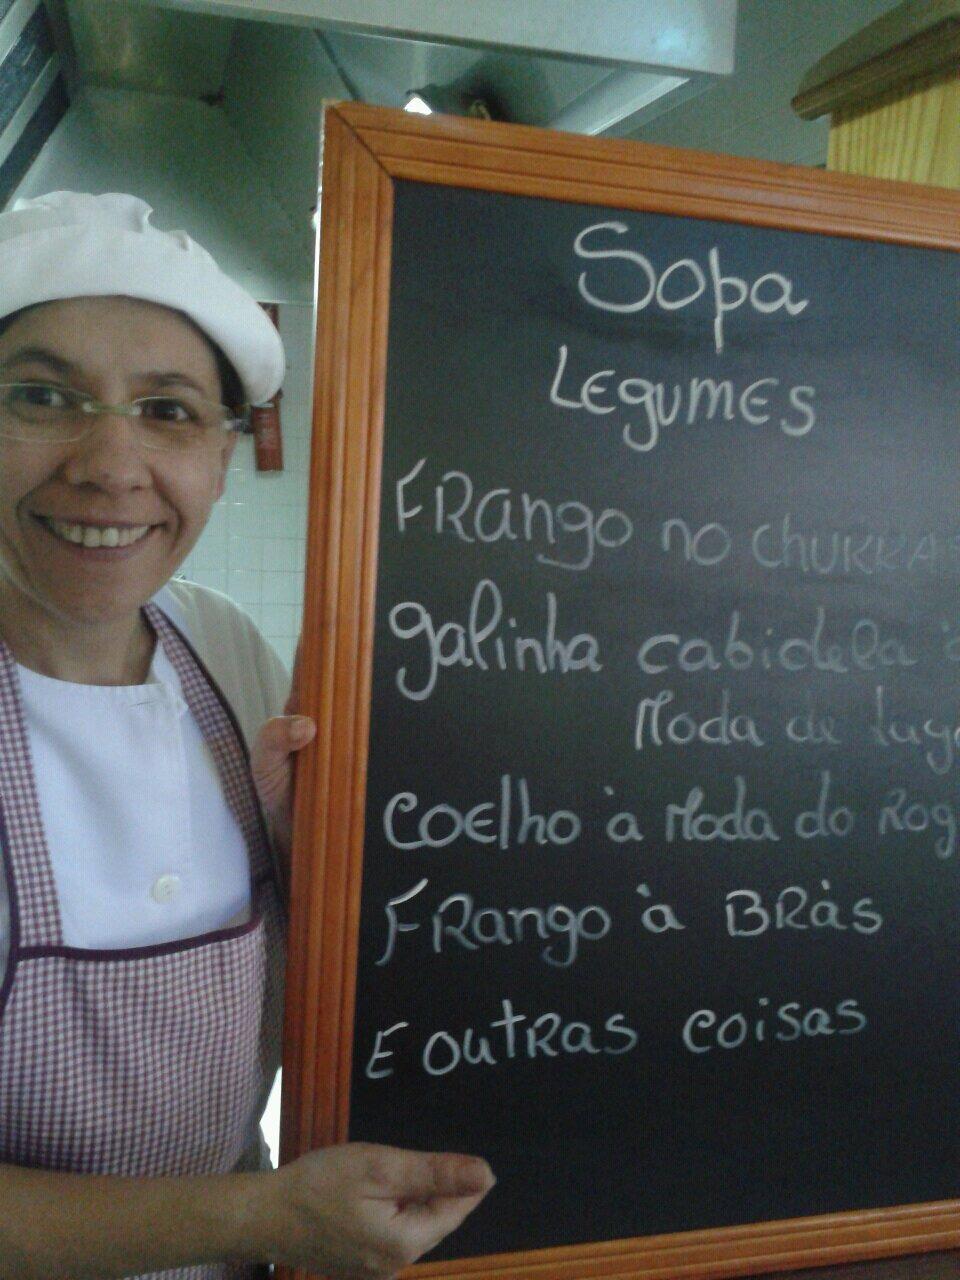 Sopa
LEgumES
FRango no chuRRAS
galinha cabidela à
Moda de
coElho à Moda do Rog
FRango à BRàs
E outRas coisas